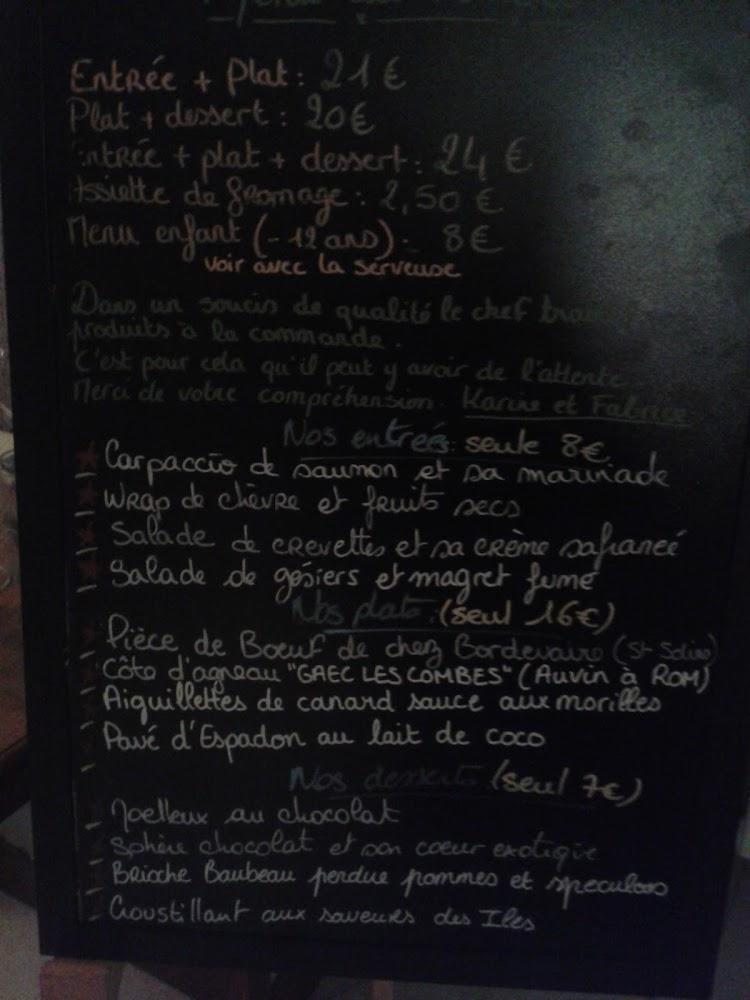 Entrée + Plat : 21 €
Plat + dessert : 20 €
Entrée + plat + dessert : 24 €
Assiette de fromage : 2,50 €
Menu enfant (- 12 ans) : 8 €
voir avec la serveuse
Dans un soucis de qualité le chef
produits à la commande.
C'est pour cela qu'il peut y avoir de l'attente
Merci de votre compréhension. Karine et Fabrice
Nos entrées : seule 8€
Carpaccio de saumon et sa marinade
Wrap de chèvre et fruits secs
Salade de crevettes et sa crème safranée
Salade de gésiers et magret fumé
Nos plats : (seul 16€)
Pièce de Boeuf de chez Bordevaire (St
Côte d'agneau "GAEC LES COMBES" (Auvin à ROM)
Aiguillettes de canard sauce aux morilles
Pavé d'Espadon au lait de coco
Nos desserts (seul 7€)
Moelleux au chocolat
Sphère chocolat et son coeur exotique
Brioche Baubeau perdue pommes et speculoos
Croustillant aux saveurs des Iles